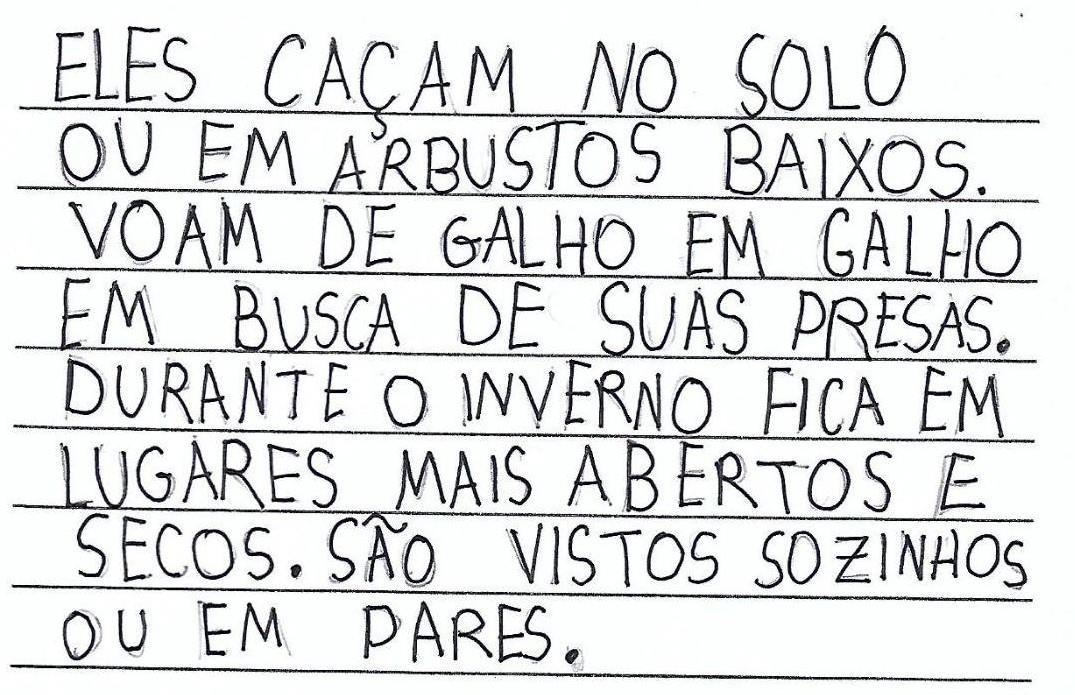 ELES CAÇAM NO SOLO
OU EM ARBUSTOS BAIXOS.
VOAM DE GALHO EM GALHO
EM BUSCA DE SUAS PRESAS.
DURANTE O INVERNO FICA EM
LUGARES MAIS ABERTOS E
SECOS. SÃO VISTOS SOZINHOS
OU EM PARES.